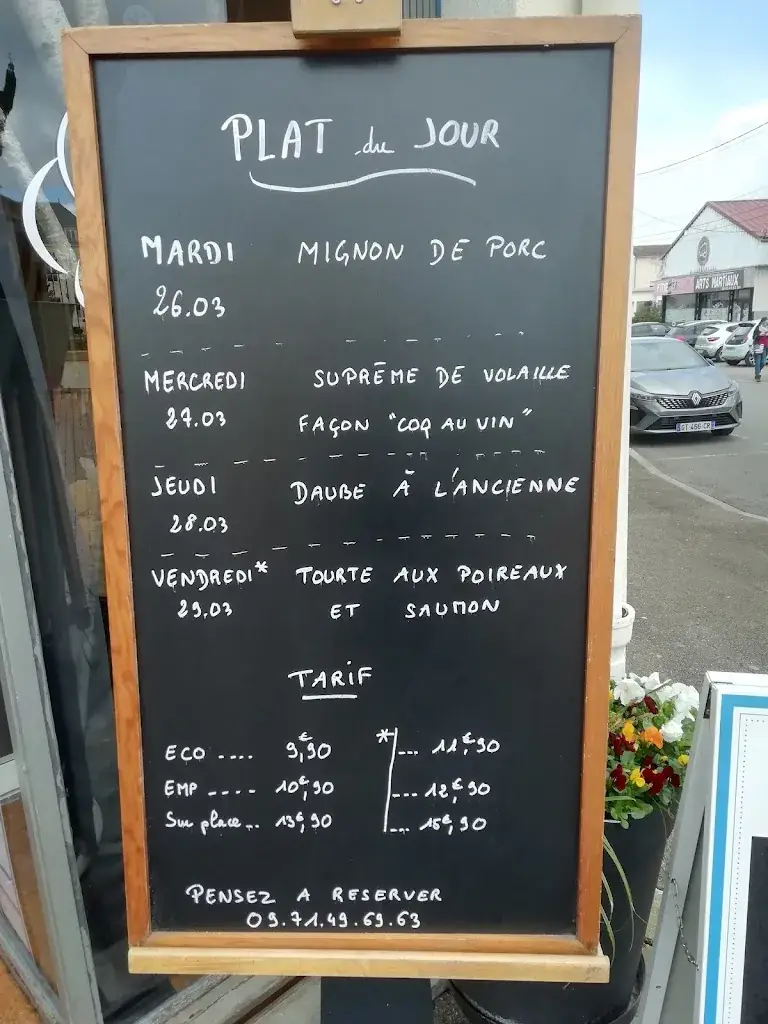 PLAT du JOUR
MARDI MIGNON DE PORC
26.03
MERCREDI SUPRÊME DE VOLAILLE
27.03 FAÇON "COQ AU VIN"
JEUDI DAUBE À L'ANCIENNE
28.03
VENDREDI* TOURTE AUX POIREAUX
29.03 ET SAUMON
TARIF
ECO .... 9,€90 * ... 11,€90
EMP .... 10€,90 ... 12€,90
Sur place... 13€,90 ... 15€,90
PENSEZ A RESERVER
09.71.49.69.63
ARTS MARTIAUX